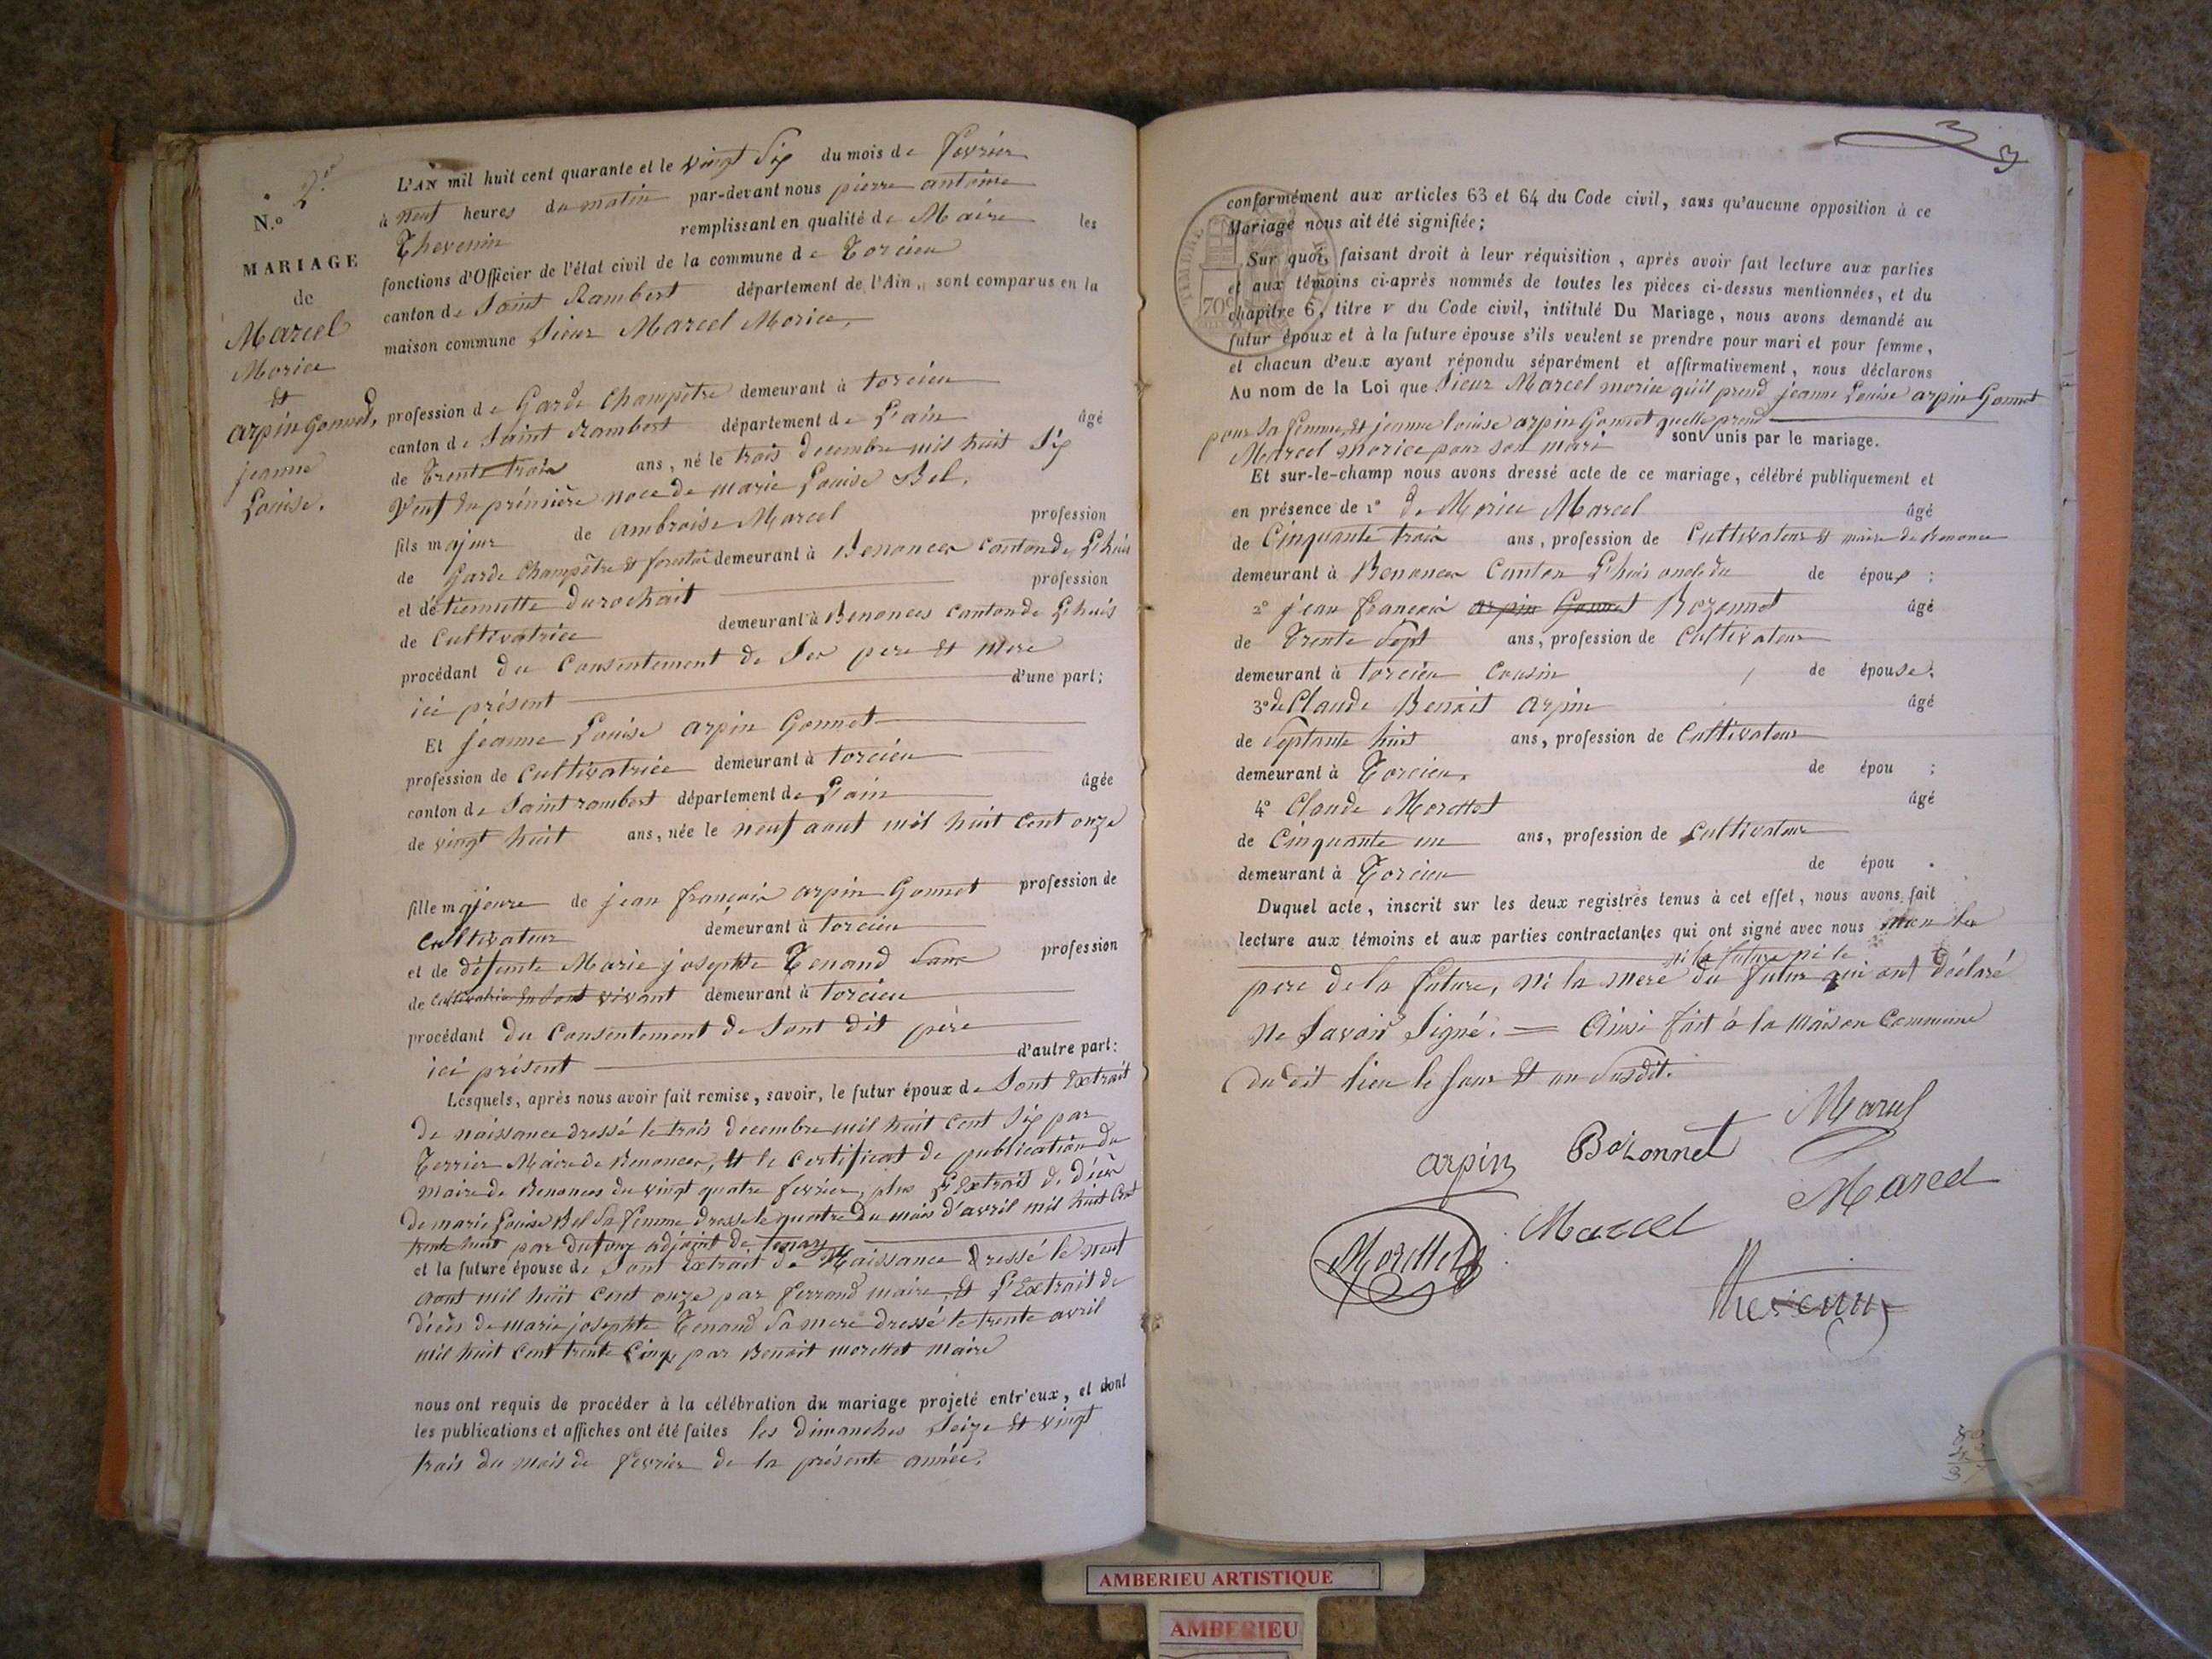 N.º 2.e
MARIAGE
de
Marcel
Morice
et
arpin Gonnet,
jeanne
Louise.
L'AN mil huit cent quarante et le vingt Six du mois de fevrier
à neuf heures du matin par-devant nous pierre antoine
Thevenin remplissant en qualité de Maire les
fonctions d'Officier de l'état civil de la commune de Torcieu
canton de Saint Rambert département de l'Ain, sont comparus en la
maison commune Sieur Marcel Morice,
profession de Garde Champêtre demeurant à torcieu
canton de Saint Rambert département de L'ain âgé
de Trente trois ans, né le trois decembre mil huit Six
Veuf En prémière noce de marie Louise Bel,
fils majeur de ambroise Marcel profession
de Garde Champêtre et forestier demeurant à Benonces canton de L'huis
et de tiennette durochait profession
de Cultivatrice demeurant à Benonces canton de Lhuis
procédant du Consentement de Ses pere et mere
ici présent d'une part;
Et jeanne Louise arpin Gonnet
profession de Cultivatrice demeurant à torcieu
canton de Saint rambert département de L'ain âgée
de vingt huit ans, née le neuf aout mil huit Cent onze
fille majeure de jean françois arpin Gonnet profession de
Cultivateur demeurant à torcieu
et de défunte Marie josephte Tenand Sans profession
de Cultivatrice En Sont vivant demeurant à torcieu
procédant du Consentement de Sont dit père
ici présent d'autre part:
Lesquels, après nous avoir fait remise, savoir, le futur époux de Sont Extrait
de naissance dressé le trois decembre mil huit Cent Six par
Terrier Maire de Benonces, et le Certificat de publication du
maire de Benonces du vingt quatre fevrier, plus L'Extrait de décès
de marie Louise Bel Sa femme dressé le quatre du mois d'avril mil huit Cent
trente huit par dufour adjoint de tenay
et la future épouse de Sont Extrait de Naissance dressé le neuf
aout mil huit Cent onze par ferrand maire, Et L'Extrait de
décès de marie josephte Tenand Sa mere dressé le trente avril
mil huit Cent trente Cinq par Benoit morettet Maire
nous ont requis de procéder à la célébration du mariage projeté entr'eux, et dont
les publications et affiches ont été faites les dimanches Seize et vingt
trois du mois de fevrier de la présente année.
3
conformément aux articles 63 et 64 du Code civil, sans qu'aucune opposition à ce
Mariage nous ait été signifiée;
Sur quoi, faisant droit à leur réquisition, après avoir fait lecture aux parties
et aux témoins ci-après nommés de toutes les pièces ci-dessus mentionnées, et du
chapitre 6, titre v du Code civil, intitulé Du Mariage, nous avons demandé au
futur époux et à la future épouse s'ils veulent se prendre pour mari et pour femme,
et chacun d'eux ayant répondu séparément et affirmativement, nous déclarons
Au nom de la Loi que Sieur Marcel morice qu'il prend jeanne Louise arpin Gonnet
pour Sa femme, et jeanne louise arpin Gonnet quelle prend
Marcel Morice pour son mari sont unis par le mariage.
Et sur-le-champ nous avons dressé acte de ce mariage, célébré publiquement et
en présence de 1º de Morice Marcel âgé
de Cinquante trois ans, profession de Cultivateur et maire de Benonces
demeurant à Benonces Canton L'huis oncle du de époux;
2º jean françois arpin Gonnet Bozonnet âgé
de Trente Sept ans, profession de Cultivateur
demeurant à torcieu Cousin de épouse;
3º de Claude Benoit arpin âgé
de Septante huit ans, profession de Cultivateur
demeurant à Torcieu, de épou ;
4º Claude Morettet âgé
de Cinquante un ans, profession de Cultivateur
demeurant à Torcieu de épou .
Duquel acte, inscrit sur les deux registres tenus à cet effet, nous avons fait
lecture aux témoins et aux parties contractantes qui ont signé avec nous non le
ni la future ni le
pere de la future, ni la mere du futur qui ont déclaré
ne Savoir Signé. = Ainsi fait à la maison Commune
du dit lieu le jour et an Susdit.
Marcel
arpin Bozonnet
Marcel
Morettet Marcel
Thevenin
TIMBRE
70c
AMBERIEU ARTISTIQUE
AMBERIEU